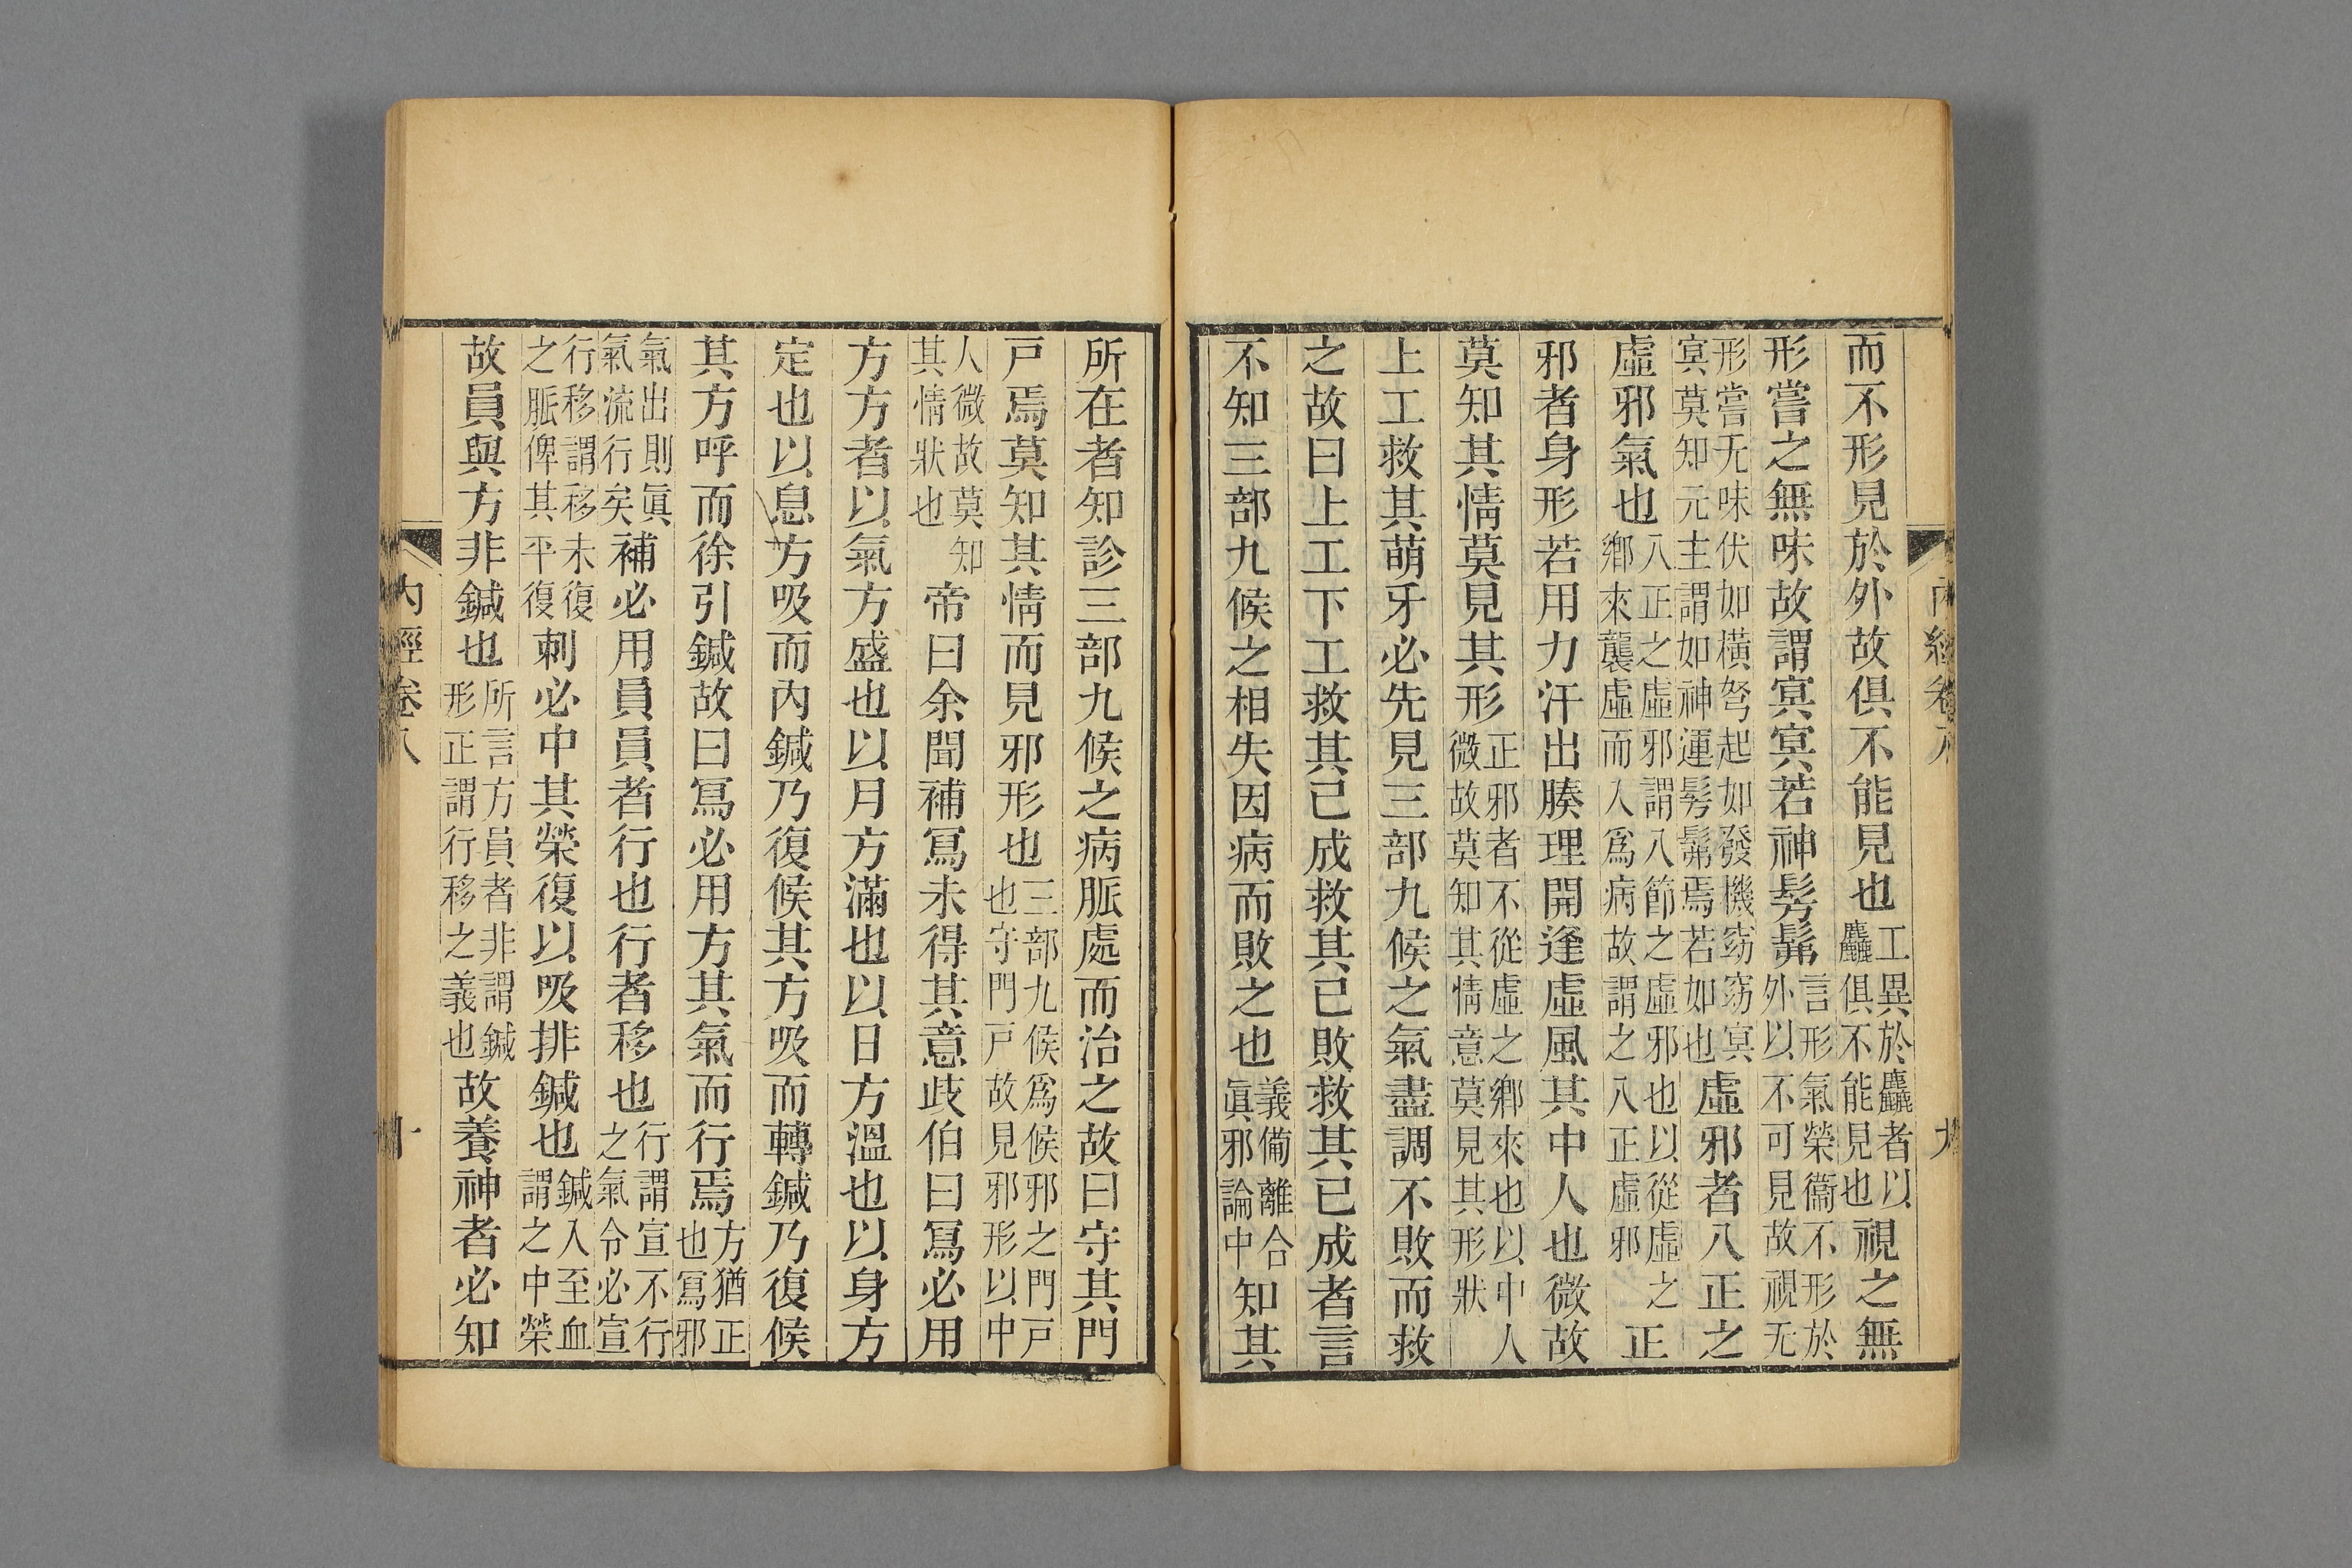 而不形見於外故俱不能見也工異於麤者以麤俱不能見也視之無
形嘗之無味故謂㝠㝠若神髣髴言形氣榮衞不形於外以不可見故視无
形嘗无味伏如橫弩起如發機窈窈㝠㝠莫知元主謂如神運髣髴焉若如也虛邪者八正之
虛邪氣也八正之虛邪謂八節之虛邪也以從虛之鄉來襲虛而入爲病故謂之八正虛邪正
邪者身形若用力汗出腠理開逢虛風其中人也微故
莫知其情莫見其形正邪者不從虛之鄉來也以中人微故莫知其情意莫見其形狀
上工救其萌牙必先見三部九候之氣盡調不敗而救
之故曰上工下工救其已成救其已敗救其已成者言
不知三部九候之相失因病而敗之也義備離合眞邪論中知其
內經卷八
九
所在者知診三部九候之病脈處而治之故曰守其門
戸焉莫知其情而見邪形也三部九候爲候邪之門戸也守門戸故見邪形以中
人微故莫知其情狀也帝曰余聞補寫未得其意歧伯曰寫必用
方方者以氣方盛也以月方滿也以日方溫也以身方
定也以息方吸而內鍼乃復候其方吸而轉鍼乃復候
其方呼而徐引鍼故曰寫必用方其氣而行焉方猶正也寫邪
氣出則眞氣流行矣補必用員員者行也行者移也行謂宣不行之氣令必宣
行移謂移未復之脈俾其平復刺必中其榮復以吸排鍼也鍼入至血謂之中榮
故員與方非鍼也所言方員者非謂鍼形正謂行移之義也故養神者必知
內經卷八
十